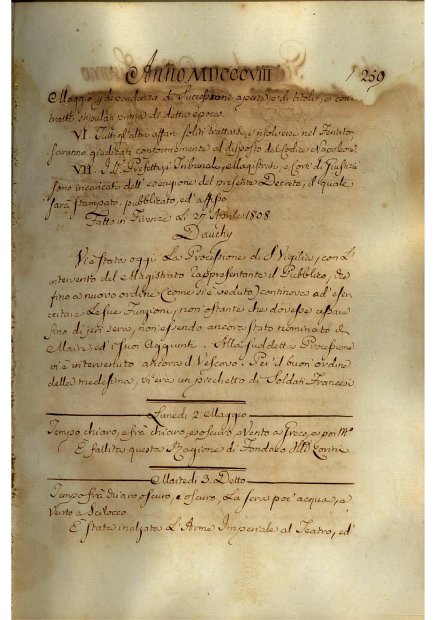 Anno MDCCCVIII 259
Maggio, e dipendenza di Successione aperta, e di titolo, e con-
tratti stipulati prima di detta epoca
VI. Tutti gl'altri affari soliti trattarsi, e risolversi nel
saranno giudicati conformemente al disposto del Codice Napoleone
VII. I Prefetti, i Tribunali, Magistrati, e Corti di Giustizia
sono incaricati dell'esecuzione del presente Decreto, il quale
sarà stampato, pubblicato, ed affisso
Fatto in Firenze li 27 Aprile 1808
Dauchy
Vi è stata oggi La Processione di S. Vigilia, con L'
intervento del Magistrato rappresentante il Pubblico, che
fino a nuovo ordine (come si è veduto) continova ad eser-
citare Le sue Funzioni, non ostante che dovesse cessare
fino di jeri sera, non essendo ancora stato nominato il
Maire, ed i suoi Aggiunti. Alla suddetta Processione
vi è intervenuto ancora il Vescovo. Per il buon ordine
della medesima, vi era un picchetto di Soldati Francesi
Lunedì 2. Maggio
Tempo chiaro, e frà chiaro, e oscuro, Vento a Greco, e poi
È fallita questa Ragione di Fondaco
Martedì 3. Detto
Tempo frà chiaro oscuro, e oscuro, La sera poi acqua, a
Vento a Scilocco
È stata inalzata L'Arme Imperiale al Teatro, ed'